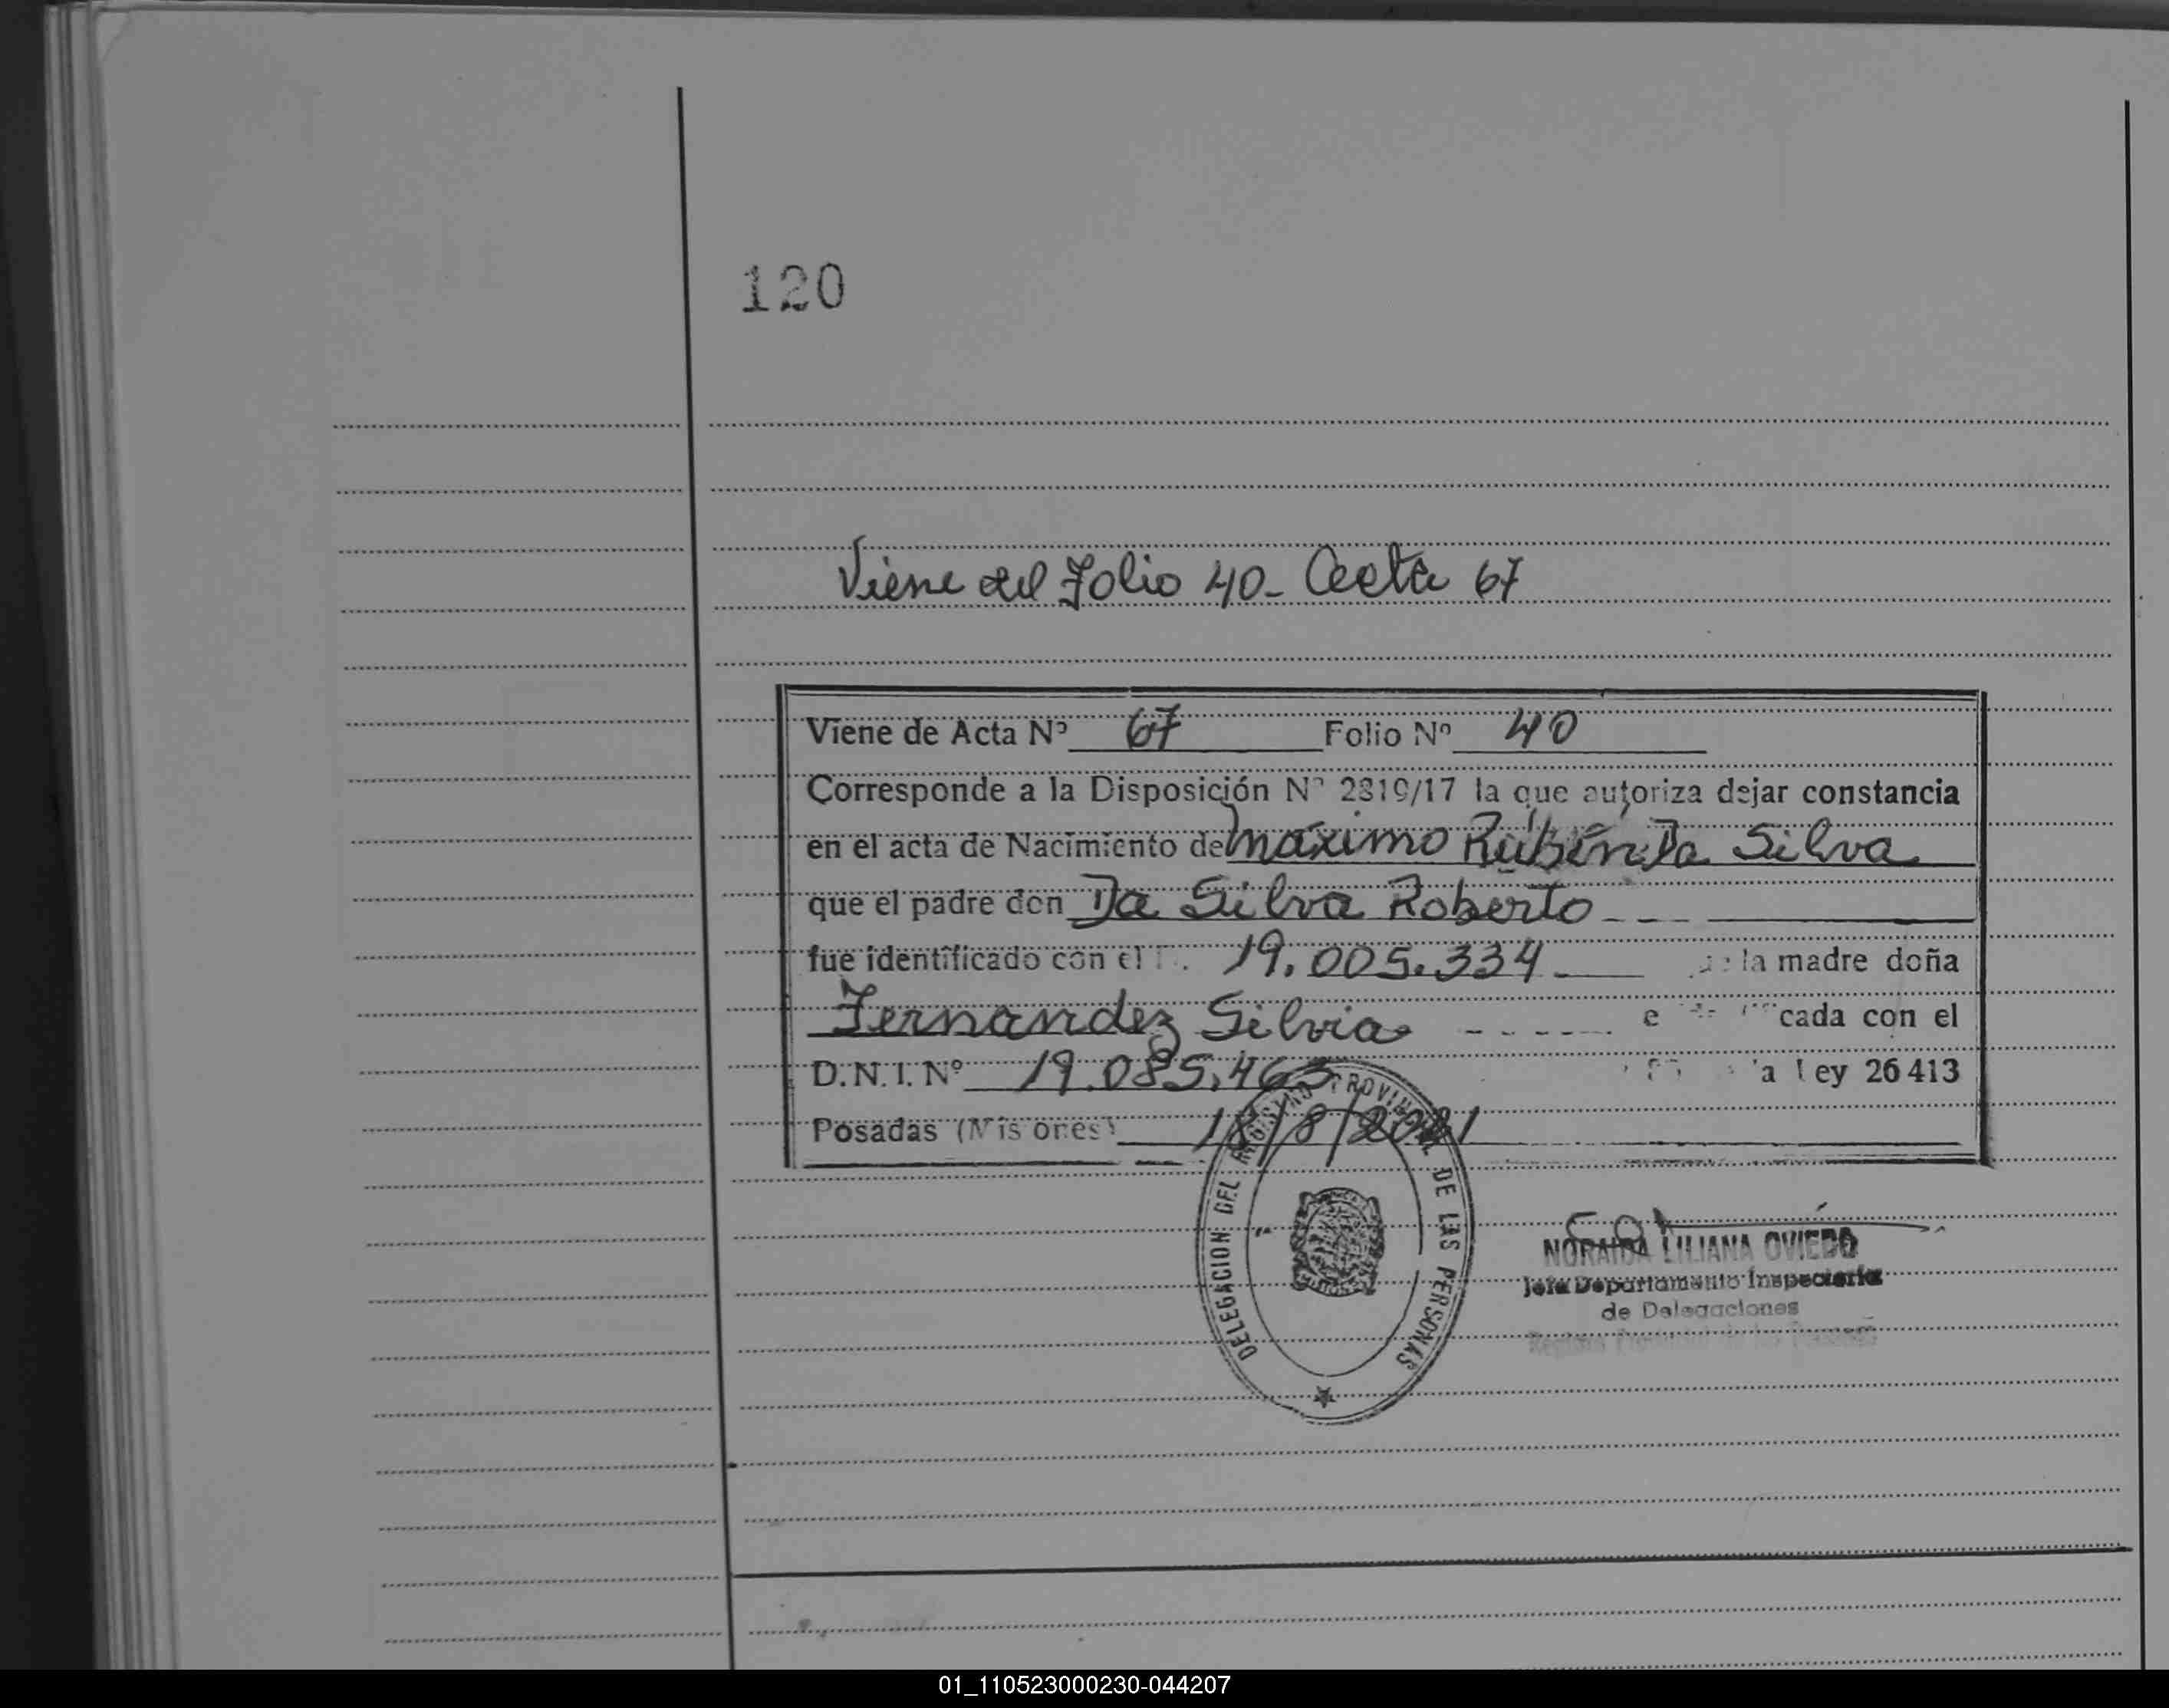 120
Viene del Folio 40- Acta 67
Viene de Acta Nº 67 Folio Nº 40
Corresponde a la Disposición Nº 2819/17 la que autoriza dejar constancia
en el acta de Nacimiento de Máximo Rubén Da Silva
que el padre don Da Silva Roberto
fue identificado con el 19.005.334 la madre doña
Fernandez Silvia cada con el
D.N.I. Nº 19.085.463 a Ley 26413
Posadas (Misiones) 18/8/2021
DELEGACION DEL REGISTRO PROVINCIAL DE LAS PERSONAS
NORAIDA LILIANA OVIEDO
Jefa Departamento Inspectoria
de Delegaciones
01_110523000230-044207